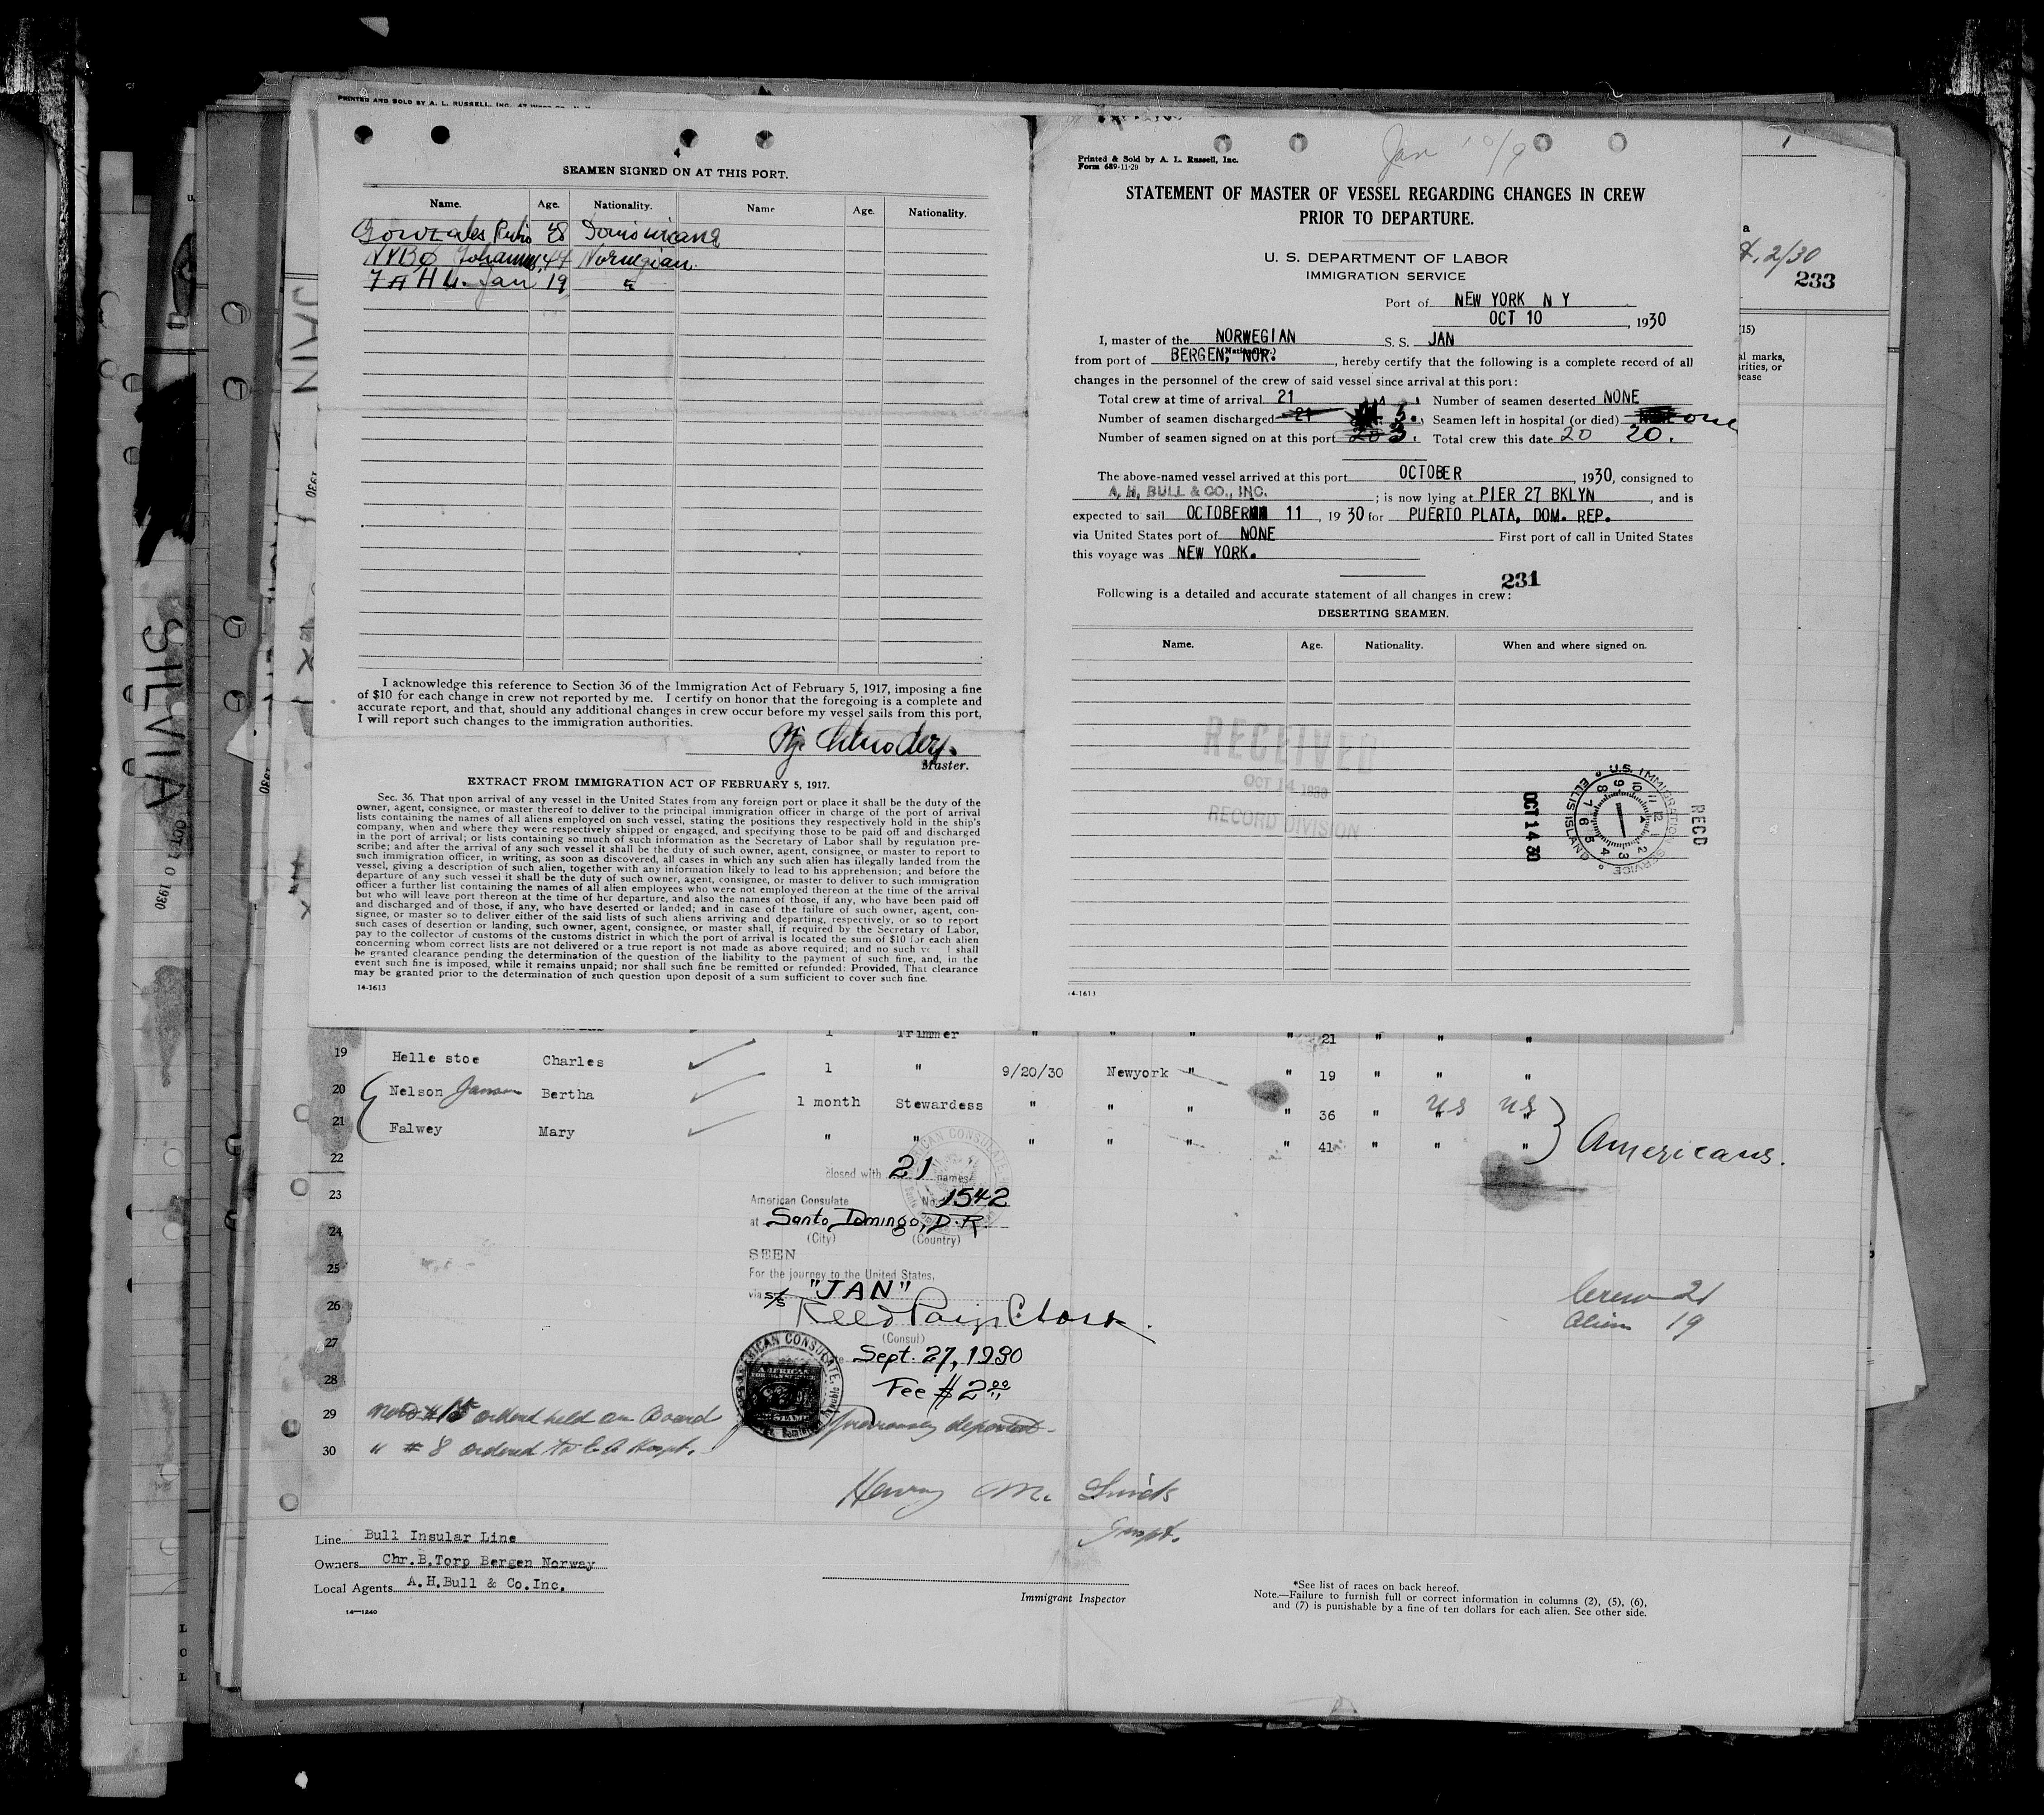 PRINTED AND SOLD BY A. L. RUSSELL, INC.
4
SEAMEN SIGNED ON AT THIS PORT.
Name. Age. Nationality. Name Age. Nationality.
Gonzales 28 Dominicana
NYBØ Johannes, 44 Norwegian.
FAHL. Jan 19 "
I acknowledge this reference to Section 36 of the Immigration Act of February 5, 1917, imposing a fine
of $10 for each change in crew not reported by me. I certify on honor that the foregoing is a complete and
accurate report, and that, should any additional changes in crew occur before my vessel sails from this port,
I will report such changes to the immigration authorities.
Master.
EXTRACT FROM IMMIGRATION ACT OF FEBRUARY 5, 1917.
Sec. 36. That upon arrival of any vessel in the United States from any foreign port or place it shall be the duty of the
owner, agent, consignee, or master thereof to deliver to the principal immigration officer in charge of the port of arrival
lists containing the names of all aliens employed on such vessel, stating the positions they respectively hold in the ship's
company, when and where they were respectively shipped or engaged, and specifying those to be paid off and discharged
in the port of arrival; or lists containing so much of such information as the Secretary of Labor shall by regulation pre-
scribe; and after the arrival of any such vessel it shall be the duty of such owner, agent, consignee, or master to report to
such immigration officer, in writing, as soon as discovered, all cases in which any such alien has illegally landed from the
vessel, giving a description of such alien, together with any information likely to lead to his apprehension; and before the
departure of any such vessel it shall be the duty of such owner, agent, consignee, or master to deliver to such immigration
officer a further list containing the names of all alien employees who were not employed thereon at the time of the arrival
but who will leave port thereon at the time of her departure, and also the names of those, if any, who have been paid off
and discharged and of those, if any, who have deserted or landed; and in case of the failure of such owner, agent, con-
signee, or master so to deliver either of the said lists of such aliens arriving and departing, respectively, or so to report
such cases of desertion or landing, such owner, agent, consignee, or master shall, if required by the Secretary of Labor,
pay to the collector of customs of the customs district in which the port of arrival is located the sum of $10 for each alien
concerning whom correct lists are not delivered or a true report is not made as above required; and no such shall
be granted clearance pending the determination of the question of the liability to the payment of such fine, and, in the
event such fine is imposed, while it remains unpaid; nor shall such fine be remitted or refunded: Provided, That clearance
may be granted prior to the determination of such question upon deposit of a sum sufficient to cover such fine.
14-1613
Jan 10/9
Printed & Sold by A. L. Russell, Inc.
Form 689-11-29
STATEMENT OF MASTER OF VESSEL REGARDING CHANGES IN CREW
PRIOR TO DEPARTURE.
U. S. DEPARTMENT OF LABOR
IMMIGRATION SERVICE
Port of NEW YORK N Y
OCT 10, 1930
I, master of the NORWEGIAN S. S. JAN
(Nationality.)
from port of BERGEN, NOR., hereby certify that the following is a complete record of all
changes in the personnel of the crew of said vessel since arrival at this port:
Total crew at time of arrival 21 Number of seamen deserted NONE
Number of seamen discharged 21 5. Seamen left in hospital (or died) one
Number of seamen signed on at this port 20 3. Total crew this date 20 20.
The above-named vessel arrived at this port OCTOBER, 1930, consigned to
A. H. BULL & CO., INC.; is now lying at PIER 27 BKLYN, and is
expected to sail OCTOBER 11, 1930 for PUERTO PLATA, DOM. REP.
via United States port of NONE First port of call in United States
this voyage was NEW YORK.
231
Following is a detailed and accurate statement of all changes in crew:
DESERTING SEAMEN.
Name. Age. Nationality. When and where signed on.
RECEIVED
OCT 14 1930
RECORD DIVISION
U.S. IMMIGRATION SERVICE ELLIS ISLAND
OCT 14 30
RECD
14-1613
2/30
233
(15)
SILVIA
OCT 10 1930
JAN
1 Trimmer " " " " 21 " " "
19 Helle stoe Charles 1 " 9/20/30 Newyork " " 19 " " "
20 Nelson Jansen Bertha 1 month Stewardess " " " " 36 " US US
21 Falwey Mary " " " " " " 41 " " " Americans.
22
closed with 21 names
23
American Consulate No. 1542
24
at Santo Domingo, D.R.
(City) (Country)
SEEN
25
For the journey to the United States,
26
via s/s "JAN"
Reed Paige Clark.
(Consul)
27
Sept. 27, 1930
28
Fee $2.00
AMERICAN CONSULATE
Crew 21
Alien 19
29 Note # 15 ordered held on Board previously deported
30 " # 8 ordered to Hospt.
Henry M.
Inspt.
Line Bull Insular Line
Owners Chr.B.Torp Bergen Norway
Local Agents A.H.Bull & Co.Inc.
14—1240
Immigrant Inspector
*See list of races on back hereof.
Note.—Failure to furnish full or correct information in columns (2), (5), (6),
and (7) is punishable by a fine of ten dollars for each alien. See other side.